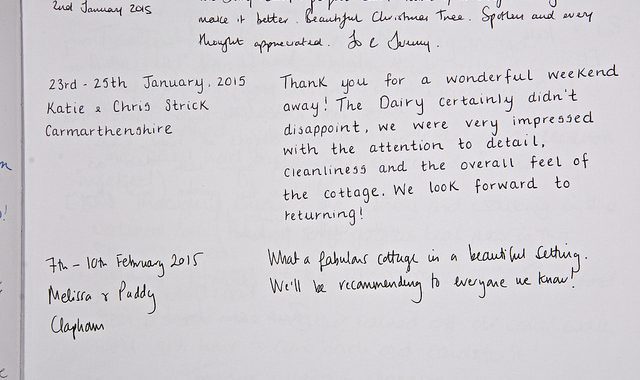 2nd January 2015
make it better. Beautiful Christmas Tree. Spotless and every
thought appreciated. Jo &
23rd - 25th January, 2015
Katie & Chris Strick
Carmarthenshire
Thank you for a wonderful weekend
away! The Dairy certainly didn't
disappoint, we were very impressed
with the attention to detail,
cleanliness and the overall feel of
the cottage. We look forward to
returning!
7th - 10th February 2015
Melissa & Paddy
Clapham
What a fabulous cottage in a beautiful setting.
We'll be recommending to everyone we know!